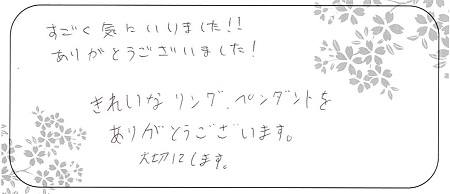 すごく気にいりました!!
ありがとうございました!
きれいなリング、ペンダントを
ありがとうございます。
大切にします。